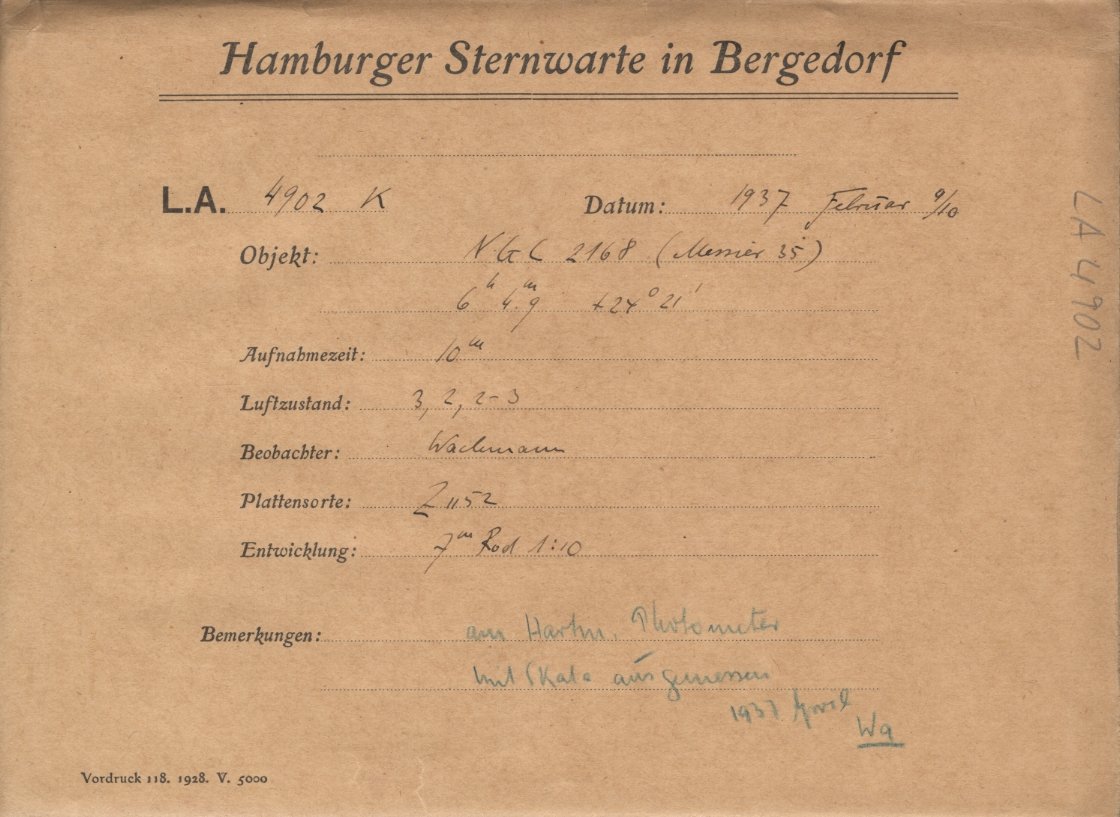 Hamburger Sternwarte in Bergedorf
L.A. 4902 K Datum: 1937 Februar 9/10
Objekt: NGC 2168 (Messier 35)
6ʰ 4.ᵐ9 +24° 21'
Aufnahmezeit: 10ᵐ
Luftzustand: 3, 2, 2-3
Beobachter: Wachmann
Plattensorte: Z 1152
Entwicklung: 7ᵐ Rod 1:10
Bemerkungen: am Hartm. Photometer
mit Skala ausgemessen
1937 April
Wa
Vordruck 118. 1928. V. 5000
LA 4902